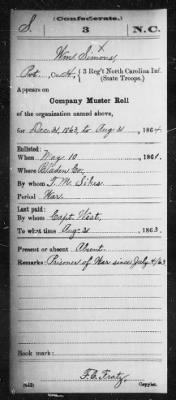 (Confederate.)
S. 3 N.C.
x
Wm Simons,
Pvt., Co. H, { 3 Reg't North Carolina Inf.
(State Troops.)
Appears on
Company Muster Roll
of the organization named above,
for Dec. 31, 1863, to Aug. 31, 1864
Enlisted:
When May 10, 1861.
Where Bladen Co.
By whom T. M. Sikes.
Period War.
Last paid:
By whom Capt. West,
To what time Aug. 31, 1863
Present or absent Absent.
Remarks: Prisoner of War since July 4/63
Book mark:
F. C. Fratz,
(642) Copyist.